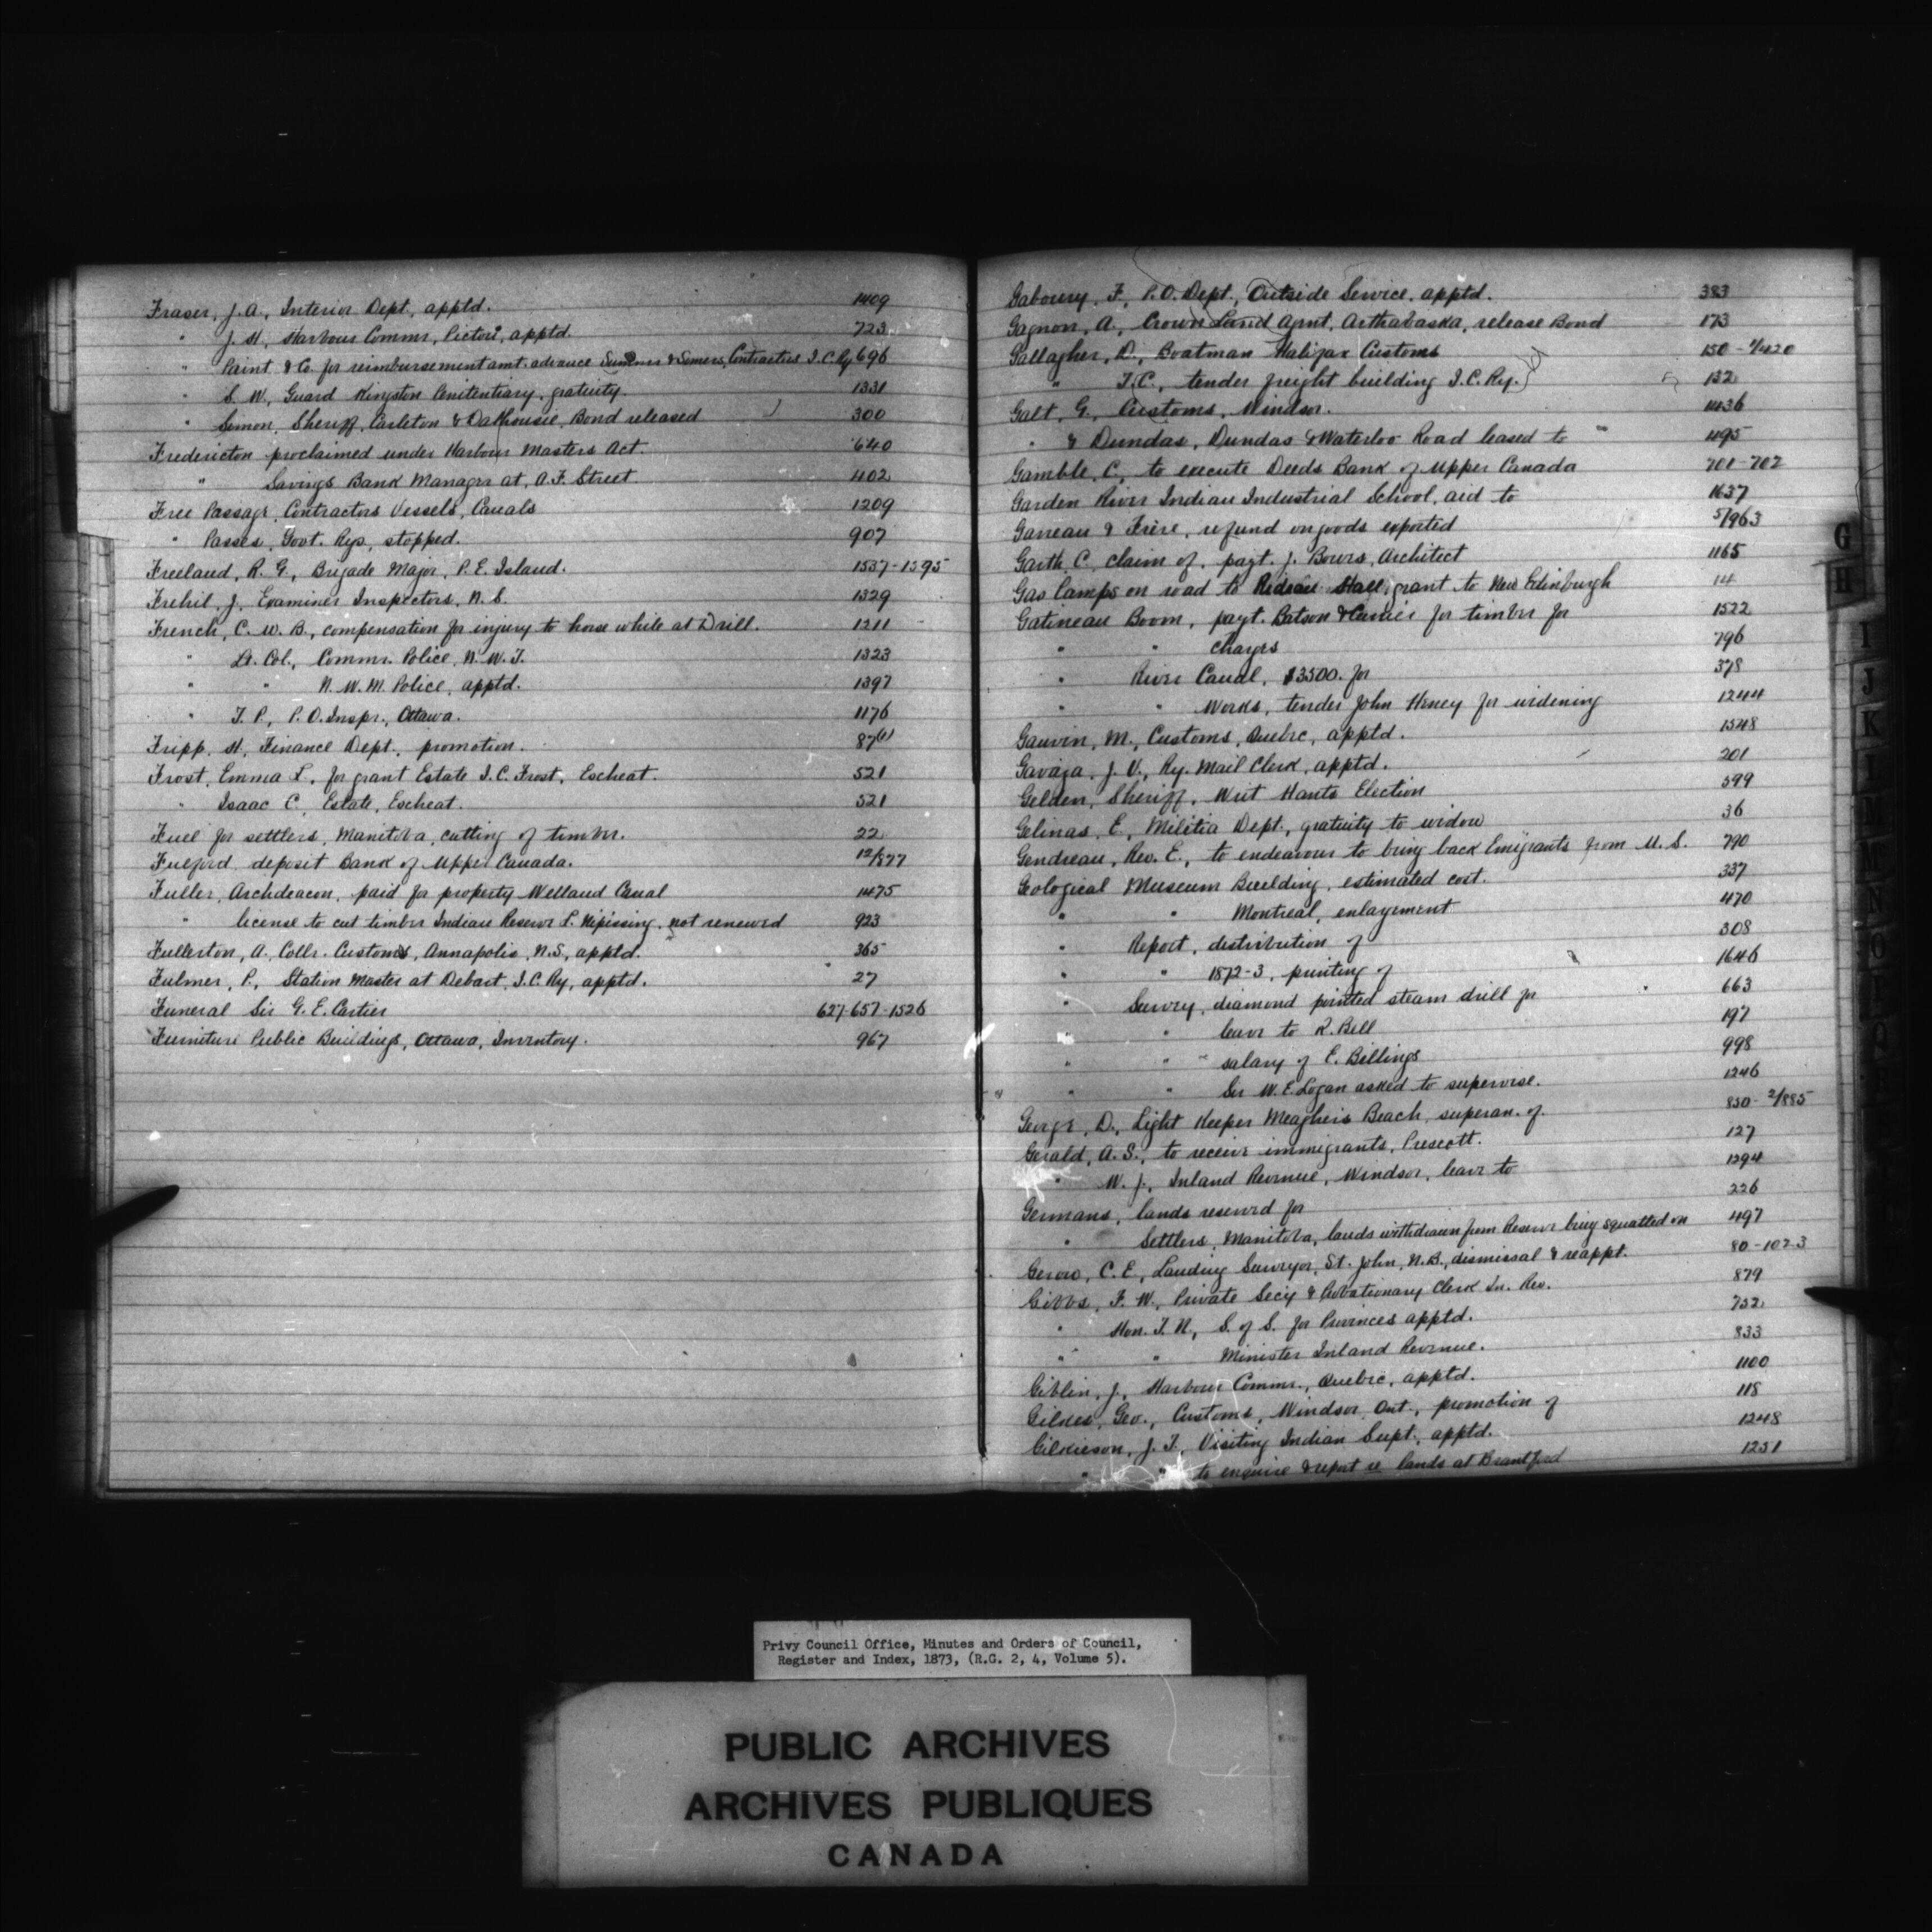 Fraser, J. A., Interior Dept, apptd. 1409
" J. H., Harbour Commr, Pictou, apptd. 723
" Paint & Co. for reimbursement amt. advance Sumner & Somers, Contractors I.C.Ry 696
" S. W., Guard Kingston Penitentiary, gratuity. 1331
" Simon, Sheriff, Carleton & Dalhousie, Bond released 300
Fredericton proclaimed under Harbour Masters Act. 640
" Savings Bank Manager at, A. F. Street. 402
Free Passage, Contractors Vessels, Canals 1209
" Passes, Govt. Rys, stopped. 907
Freeland, R. G., Brigade Major, P. E. Island. 1537-1395
Frehil, J., Examiner Inspectors, N. S. 1329
French, C. W. B., compensation for injury to horse while at Drill. 1211
" Lt. Col., Commr. Police, N. W. T. 1323
" " N. W. M. Police, apptd. 1397
" T. P., P. O. Inspr., Ottawa. 1176
Fripp, H., Finance Dept., promotion. 87(1)
Frost, Emma L., for grant Estate I. C. Frost, Escheat. 521
" Isaac C. Estate, Escheat. 521
Fuel for settlers, Manitoba, cutting of timber. 22
Fulford deposit Bank of Upper Canada. 12/877
Fuller, Archdeacon, paid for property Welland Canal 1475
" license to cut timber Indian Reserve L. Nipissing, not renewed 923
Fullerton, A., Collr. Customs, Annapolis, N.S., apptd. 365
Fulmer, P., Station Master at Debart, I.C.Ry, apptd. 27
Funeral Sir G. E. Cartier 627-657-1526
Furniture Public Buildings, Ottawa, Inventory. 967
Gaboury, F., P.O. Dept., Outside Service, apptd. 383
Gagnon, A., Crown Land Agent, Arthabaska, release Bond 173
Gallagher, D., Boatman Halifax Customs 150-1/420
" T.C., tender freight building I.C.Ry. 132
Galt, G., Customs, Windsor. 1436
" & Dundas, Dundas & Waterloo Road leased to 495
Gamble, C., to execute Deeds Bank of Upper Canada 701-702
Garden River Indian Industrial School, aid to 1637
Garneau & Frère, refund on goods exported 5/963
Garth, C., claim of, payt. J. Bowes, Architect 1165
Gas Lamps on road to Rideau Hall, grant to New Edinburgh 14
Gatineau Boom, payt. Batson & Currier for timber for 1522
" " charges 796
" River Canal, $3500. for 378
" " Works, tender John Heney for widening 1244
Gauvin, M., Customs, Quebec, apptd. 1548
Gavaza, J. V., Ry. Mail Clerk, apptd. 201
Gelden, Sheriff, West Hants Election 599
Gelinas, E., Militia Dept., gratuity to widow 36
Gendreau, Rev. E., to endeavour to bring back Emigrants from U. S. 790
Geological Museum Building, estimated cost. 337
" " Montreal, enlargement 470
" Report, distribution of 308
" " 1872-3, printing of 1646
" Survey, diamond pointed steam drill for 663
" " leave to R. Bell 197
" " salary of E. Billings 998
" " Sir W. E. Logan asked to supervise. 1246
George, D., Light Keeper Meagher's Beach, superan. of. 850-2/885
Gerald, A. S., to receive immigrants, Prescott. 127
" W. J., Inland Revenue, Windsor, leave to 1294
Germans, lands reserved for 226
" Settlers, Manitoba, lands withdrawn from Reserve being squatted on 497
Gerow, C. E., Landing Surveyor, St. John, N.B., dismissal & reappt. 80-1023
Gibbs, F. W., Private Secy & Probationary Clerk In. Rev. 879
" Hon. T. N., S. of S. for Provinces apptd. 752
" " Minister Inland Revenue. 833
Giblin, J., Harbour Commr., Quebec, apptd. 1100
Gilkes, Geo., Customs, Windsor, Ont., promotion of 118
Gilkieson, J. T., Visiting Indian Supt., apptd. 1248
" " to enquire & report re lands at Brantford 1251
G
H
I
J
K
L
N
O
Privy Council Office, Minutes and Orders of Council,
Register and Index, 1873, (R.G. 2, 4, Volume 5).
PUBLIC ARCHIVES
ARCHIVES PUBLIQUES
CANADA